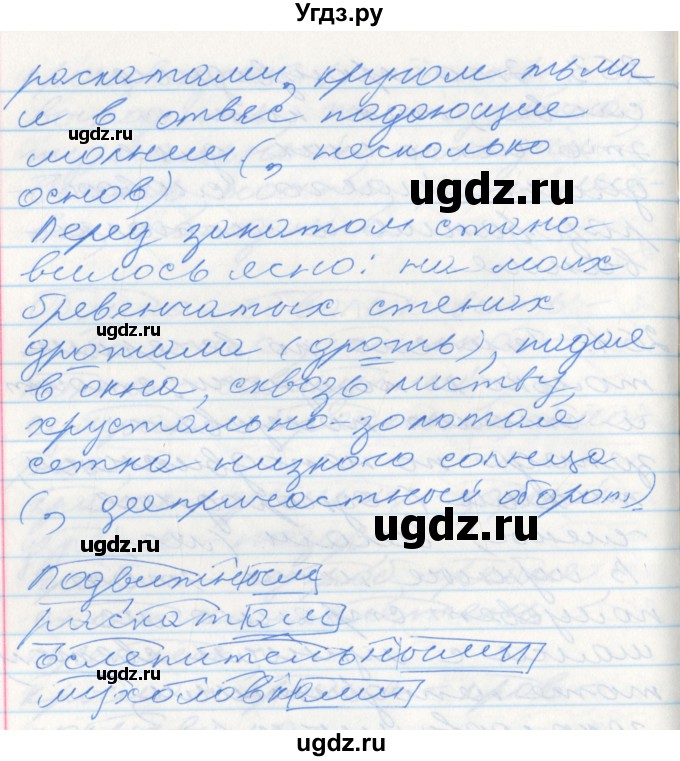 Угдз.ру
раскатами, кругом тьма
и в отвес падающие
ugdz.ru
молнии (, несколько
основ)
ugdz.ru
Перед закатом стано-
вилось ясно: на моих
бревенчатых стенах
ugdz.ru
дрожала (дрожь), падая
в окна, сквозь листву
хрустально-золотая
сетка низкого солнца
(, деепричастный оборот)
ugdz.ru
ugdz.ru
Подвижным
раскатам
ослепительными
мухоловками
ugdz.ru
ugdz.ru